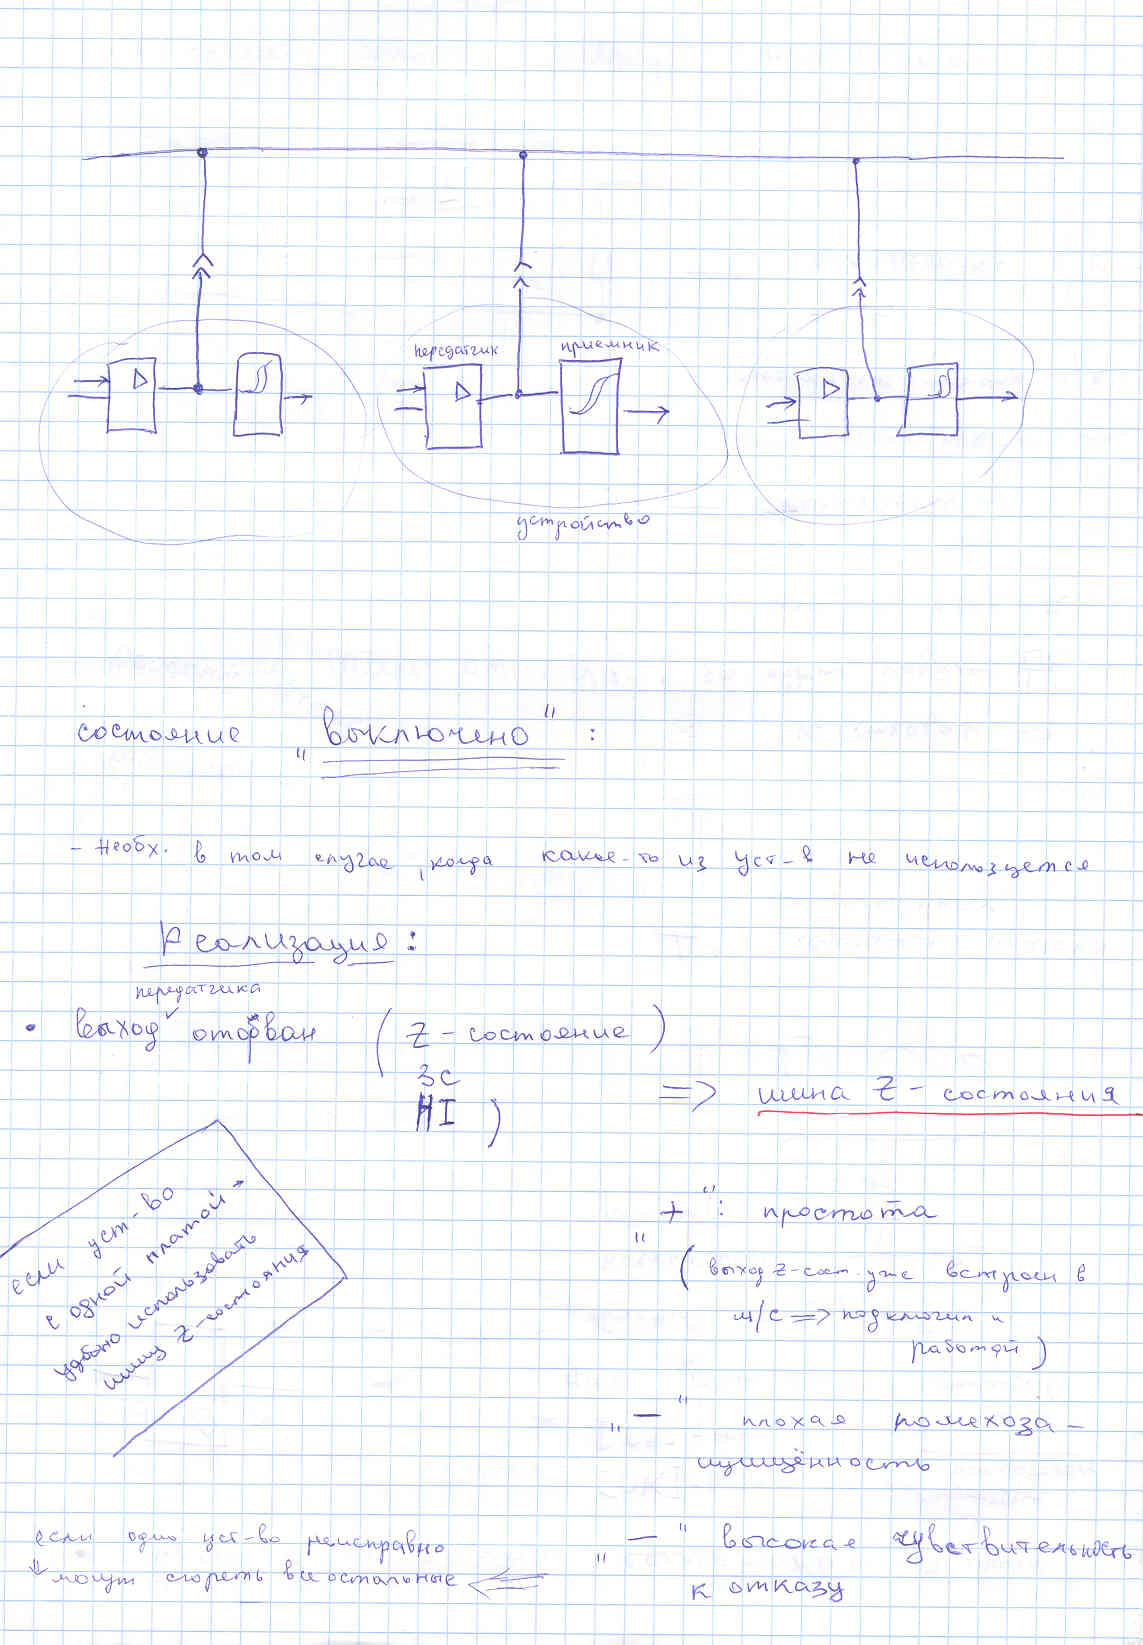 передатчик
приемник
устройство
состояние „выключено" :
- Необх. в том случае, когда какое-то из уст-в не используется
Реализация:
передатчика
• Выход оторван ( Z-состояние )
ЗС
HI )
=> шина Z-состояния
если уст-во
с одной платой →
удобно использовать
шину Z-состояния
„+": простота
( выход Z-сост. уже встроен в
м/с => подключил и
работай )
„—" плохая помехоза-
щищённость
„—" высокая чувствительность
к отказу
если одно уст-во неисправно
⇓ могут сгореть все остальные <=